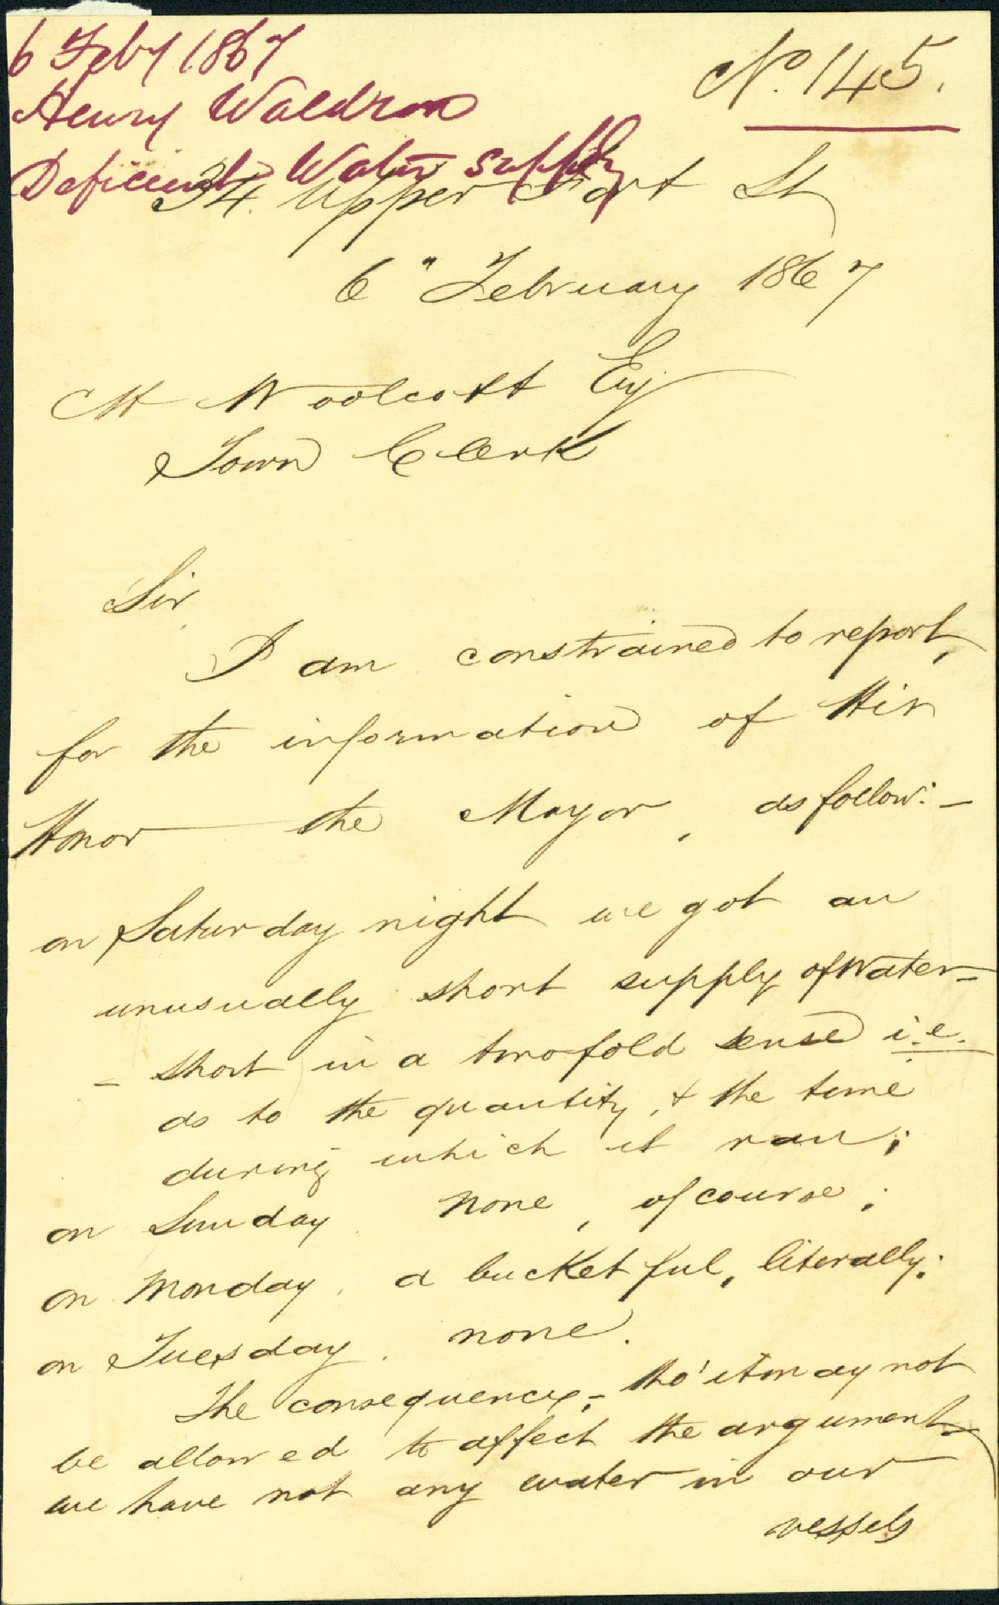 6 Feby 1867
Henry Waldron
Deficient Water supply
No. 145.
34. Upper Fort St
6" February 1867
Woolcott Esq
Town Clerk
Sir,
I am constrained to report,
for the information of His
Honor the Mayor, as follow:-
on Saturday night we got an
unusually short supply of water-
- short in a twofold sense i.e.
as to the quantity, & the time
during which it ran;
on Sunday. none, of course;
on Monday, a bucket ful, literally;
on Tuesday, none.
The consequence,- tho' it may not
be allowed to affect the argument,
we have not any water in our
vessels